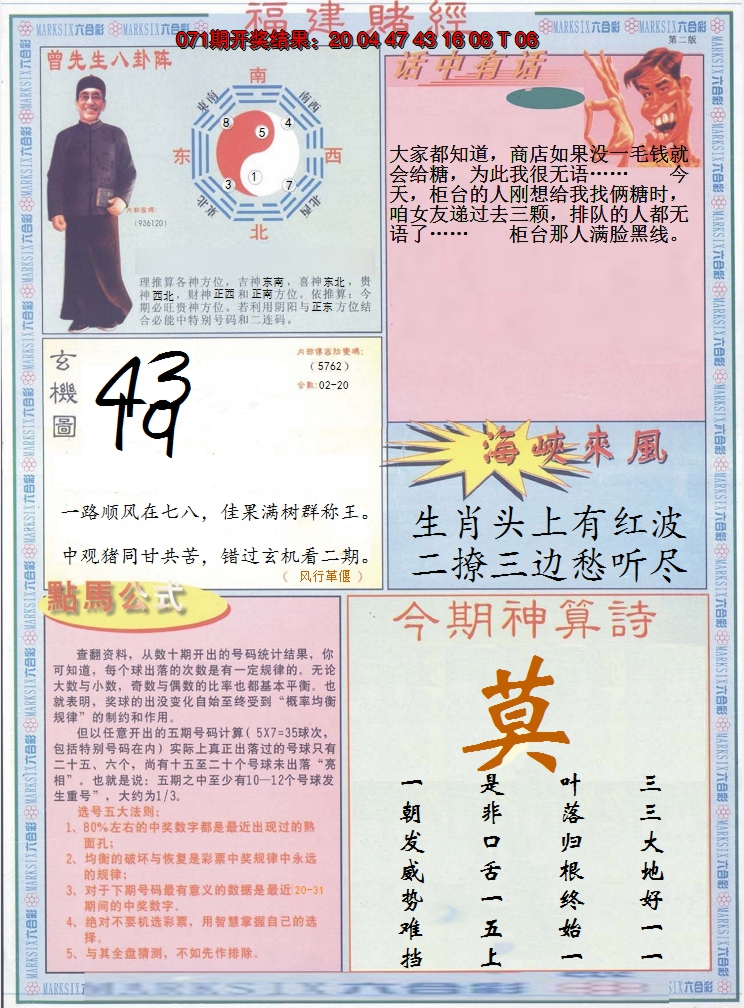 福建賭經
071期开奖结果：20 04 47 43 16 08 T 06
第二版
曾先生八卦阵
南
東南
南西
8
5
4
东
西
3
1
7
東北
北西
北
內部密碼:
(936120)
理推算各神方位，吉神东南，喜神东北，贵
神西北，财神正西和正南方位。依推算：今
期必旺贵神方位。若利用阴阳与正东方位结
合必能中特别号码和二连码。
话中有话
大家都知道，商店如果没一毛钱就
会给糖，为此我很无语…… 今
天，柜台的人刚想给我找俩糖时，
咱女友递过去三颗，排队的人都无
语了…… 柜台那人满脸黑线。
玄機圖
43
49
（5762）
合数:02-20
一路顺风在七八，佳果满树群称王。
中观猪同甘共苦，错过玄机看二期。
（ 风行草偃 ）
海峽來風
生肖头上有红波
二撩三边愁听尽
點馬公式
查翻资料，从数十期开出的号码统计结果，你
可知道，每个球出落的次数是有一定规律的。无论
大数与小数，奇数与偶数的比率也都基本平衡。也
就表明，奖球的出没变化自始至终受到“概率均衡
规律”的制约和作用。
但以任意开出的五期号码计算( 5X7=35球次，
包括特别号码在内) 实际上真正出落过的号球只有
二十五、六个，尚有十五至二十个号球未出落“亮
相”。也就是说：五期之中至少有10—12个号球发
生重号”，大约为1/3。
选号五大法则:
1、80%左右的中奖数字都是最近出现过的熟
面孔；
2、均衡的破坏与恢复是彩票中奖规律中永远
的规律；
3、对于下期号码最有意义的数据是最近20-31
期间的中奖数字。
4、绝对不要机选彩票，用智慧掌握自己的选
择。
5、与其全盘猜测，不如先作排除.
今期神算詩
莫
三三大地好一一
叶落归根终始一
是非口舌一五上
一朝发威势难挡
MARKSIX六合彩